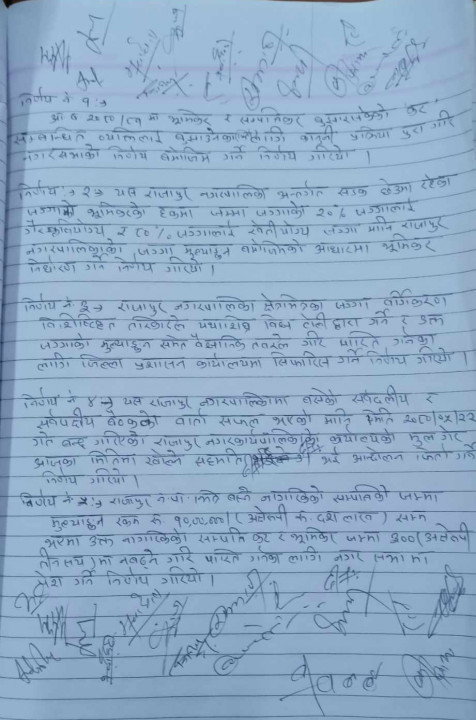 निर्णय नं १
आ.व २०८०/८१ मा भूमिकर र सम्पतिकर बुझाएकोको कर
सम्बन्धित व्यक्तिलाई बुझाउनका लागि कानूनी प्रक्रिया पुरा गरि
नगरसभाको निर्णय बमोजिम गर्ने निर्णय गरियो ।
निर्णय २ यस राजापुर नगरपालिका अन्तर्गत सडक छेउमा रहेका
जग्गाको भूमिकरको हकमा जम्मा जग्गाको २०% जग्गालाई
र ८०% जग्गालाई खेतीयोग्य जग्गा मानि राजापुर
नगरपालिकाको जग्गा मुल्याङ्कन बमोजिमको आधारमा भूमिकर
निर्धारण गर्ने निर्णय गरियो ।
निर्णय नं ३ राजापुर नगरपालिका क्षेत्रभित्रका जग्गा वर्गिकरण
तरिकारले यथाशिघ्र विज्ञ टोली द्वारा गर्ने र उक्त
जग्गाको मुल्याङ्कन समेत वैज्ञानिक तवरले गरि पारित गर्नका
लागि जिल्ला प्रशासन कार्यालयमा सिफारिस गर्ने निर्णय गरियो ।
निर्णय नं ४ यस राजापुर नगरपालिकामा बसेको सर्वदलीय र
सर्वपक्षीय बैठकको वार्ता सफल भएको मानि मिति २०८०/०४/२२
गते बन्द गरिएको राजापुर नगरकार्यपालिकाको कार्यालयको मुल गेट
आजका मितिमा खोल्ने सहमति भई आन्दोलन फिर्ता गर्ने
निर्णय गरियो ।
निर्णय नं ५ राजापुर न.पा. भित्र बस्ने नागरिकको सम्पतिको जम्मा
मुल्याङ्कन रकम रु. १०,००,०००/ (अक्षेरुपी रु. दश लाख) सम्म
भएमा उक्त नागरिकको सम्पति कर र भूमिकर जम्मा ३००/ (अक्षेरुपी
तीनसय) मा नबढ्ने गरि पारित गर्नका लागि नगर सभामा
पेश गर्ने निर्णय गरियो ।